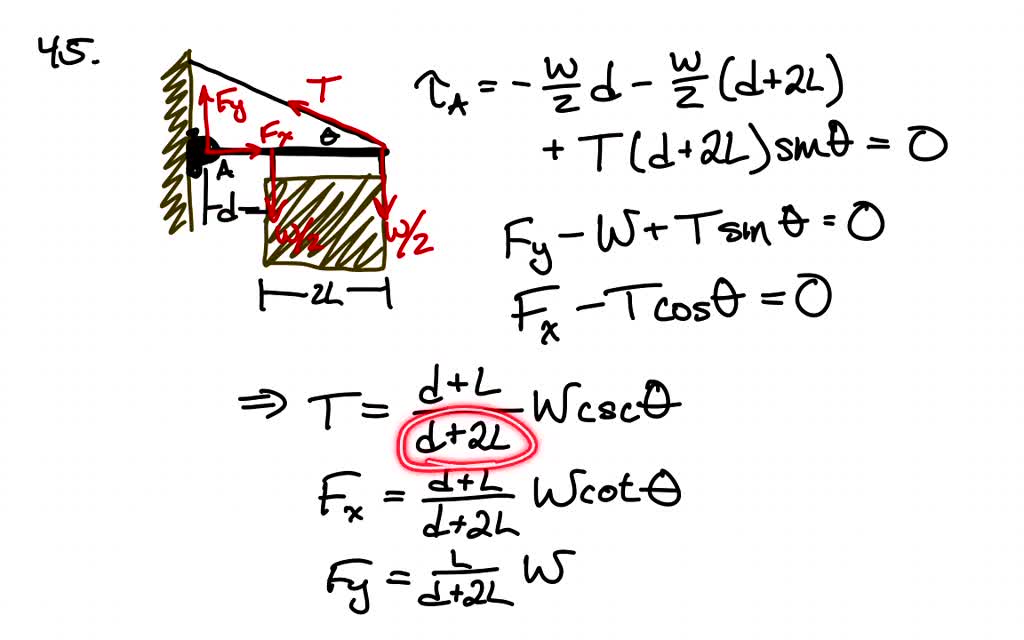 45.
T
Fy
Fx
θ
A
d
W/2
W/2
2L
τ_A = - W/2 d - W/2 (d+2L)
+ T(d+2L) sinθ = 0
Fy - W + T sinθ = 0
Fx - T cosθ = 0
⇒ T = (d+L)/(d+2L) W cscθ
Fx = (d+L)/(d+2L) W cotθ
Fy = L/(d+2L) W